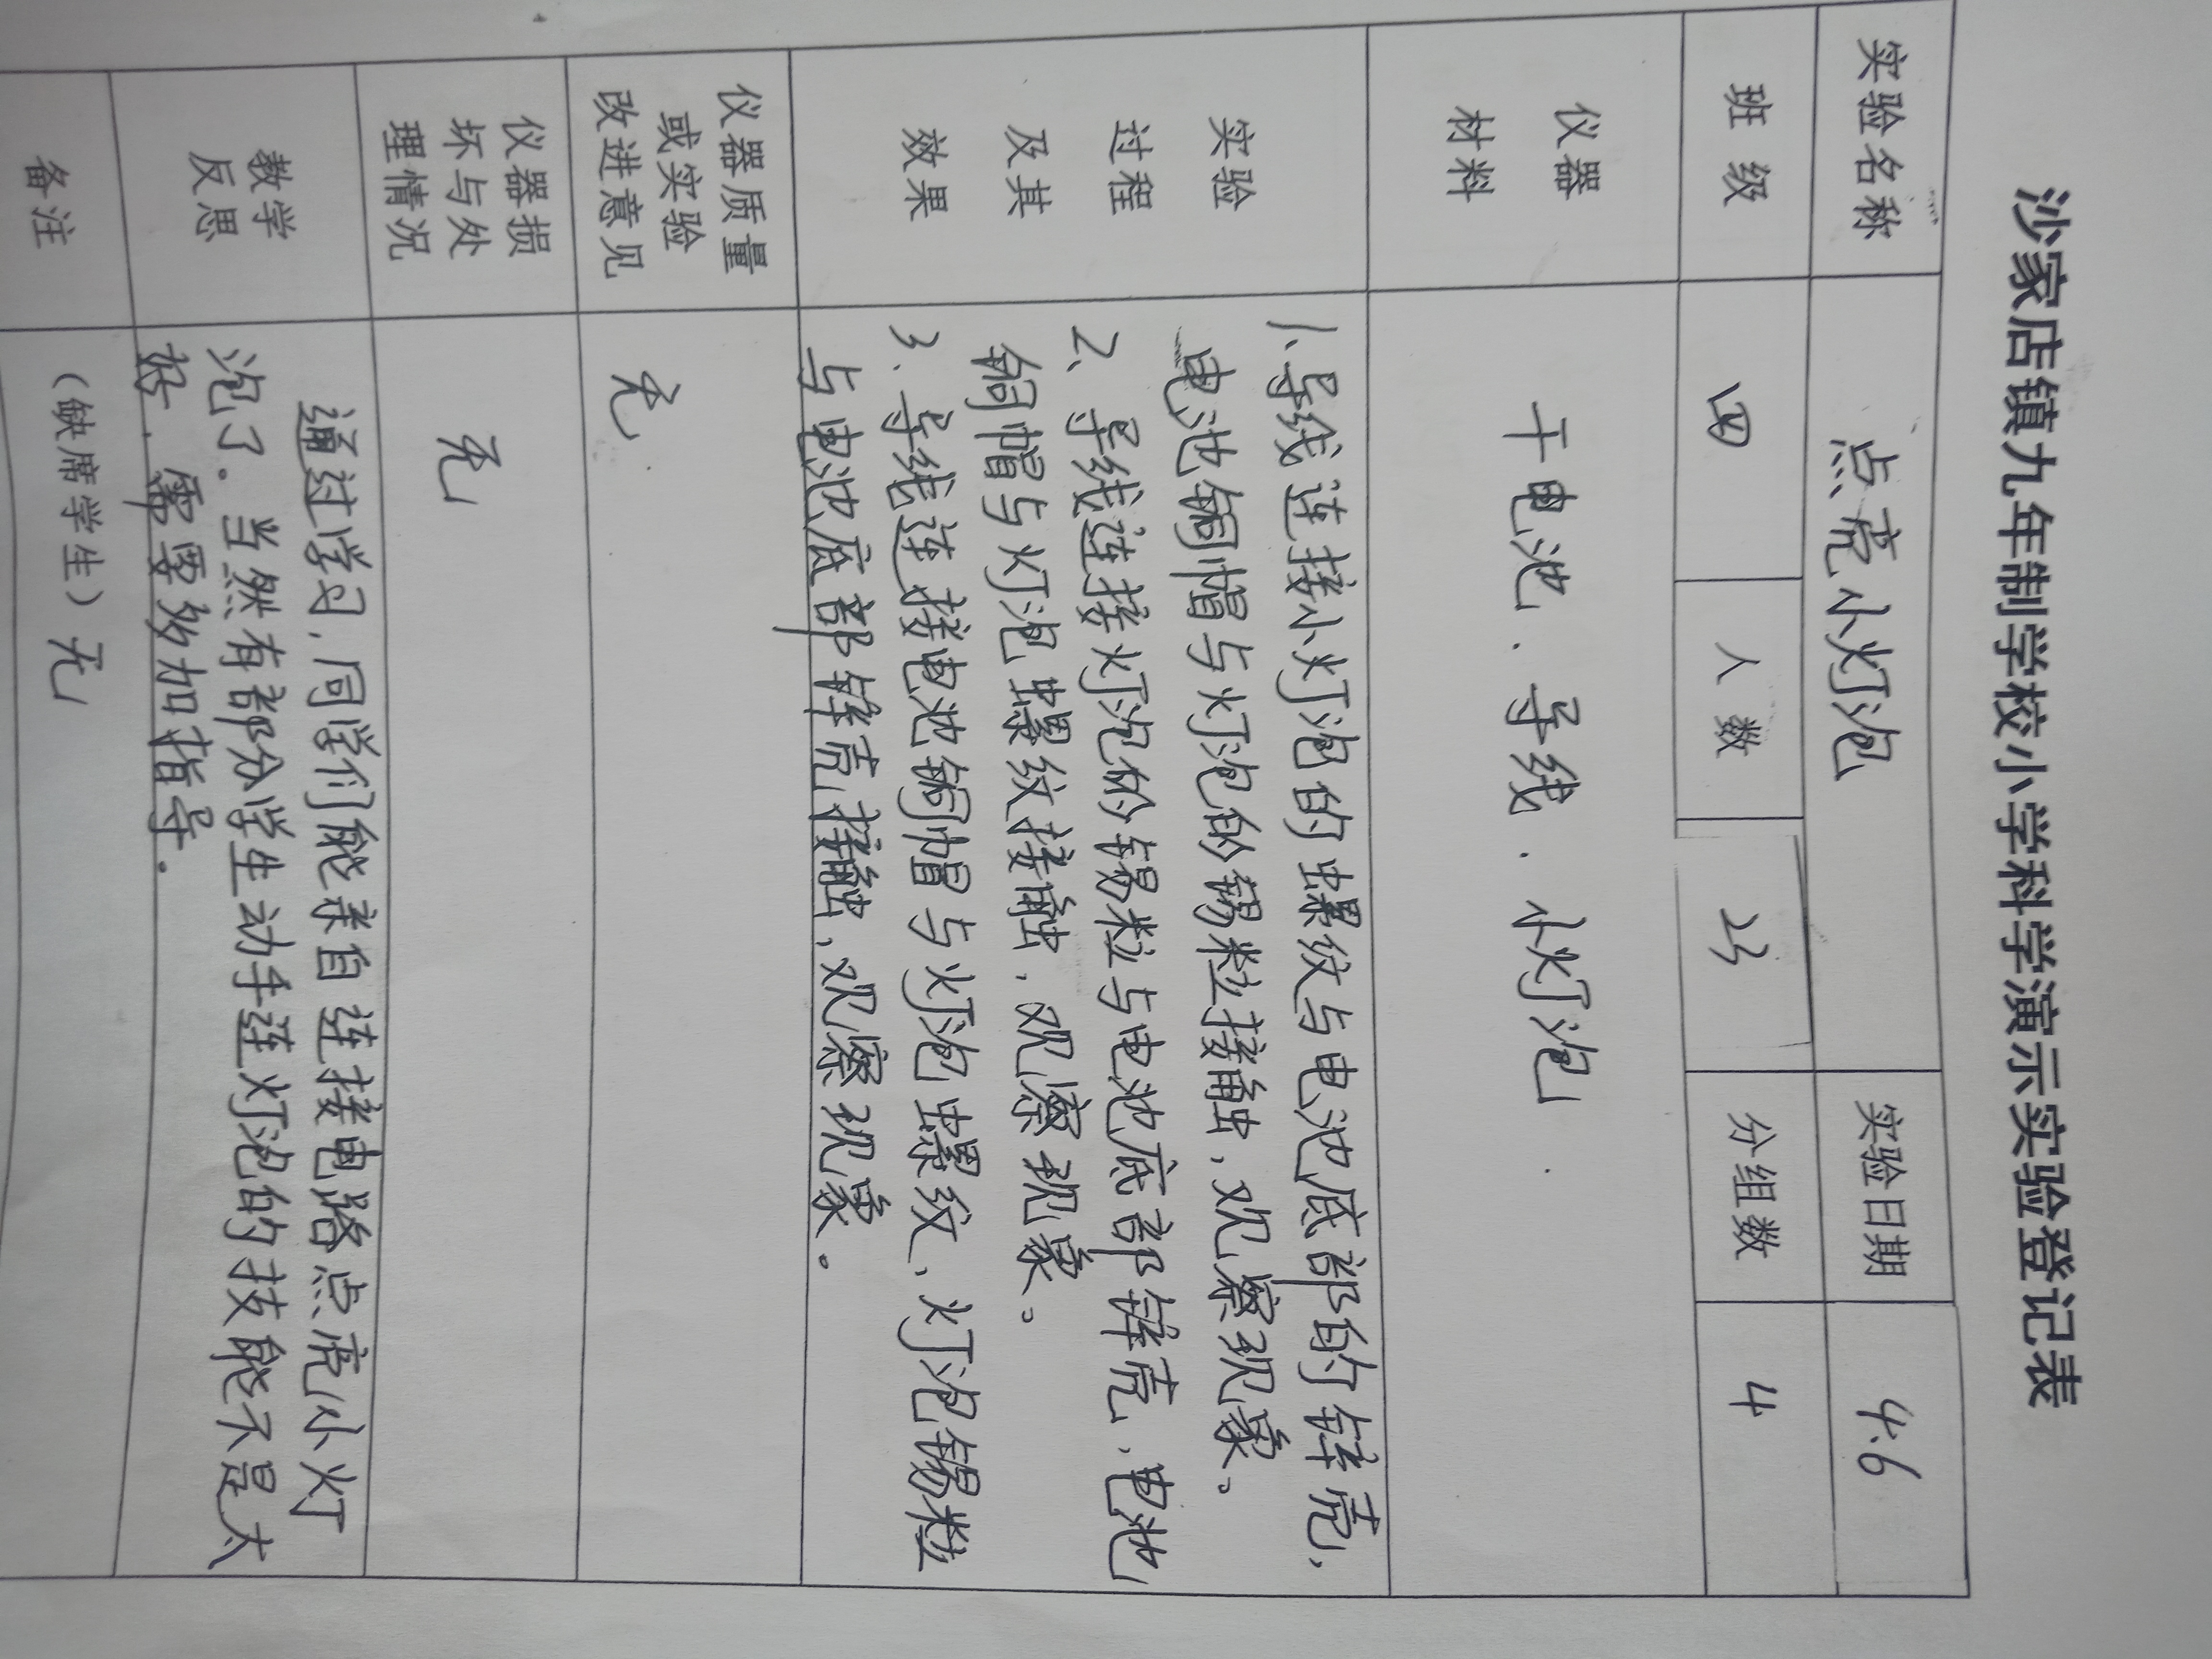 沙家店镇九年制学校小学科学演示实验登记表
实验名称 点亮小灯泡 实验日期 4.6
班 级 四 人 数 23 分组数 4
仪器
材料
干电池.导线.小灯泡.
实验
过程
及其
效果
1、导线连接小灯泡的螺纹与电池底部的锌壳,
电池铜帽与灯泡的锡粒接触,观察现象。
2、导线连接灯泡的锡粒与电池底部锌壳、电池
铜帽与灯泡螺纹接触,观察现象。
3、导线连接电池铜帽与灯泡螺纹、灯泡锡粒
与电池底部锌壳接触,观察现象.
仪器质量
或实验
改进意见
无
仪器损
坏与处
理情况
无
教学
反思
通过学习,同学们能亲自连接电路点亮小灯
泡了.当然有部分学生动手连灯泡的技能不是太
好,需要多加指导.
备注 (缺席学生)无